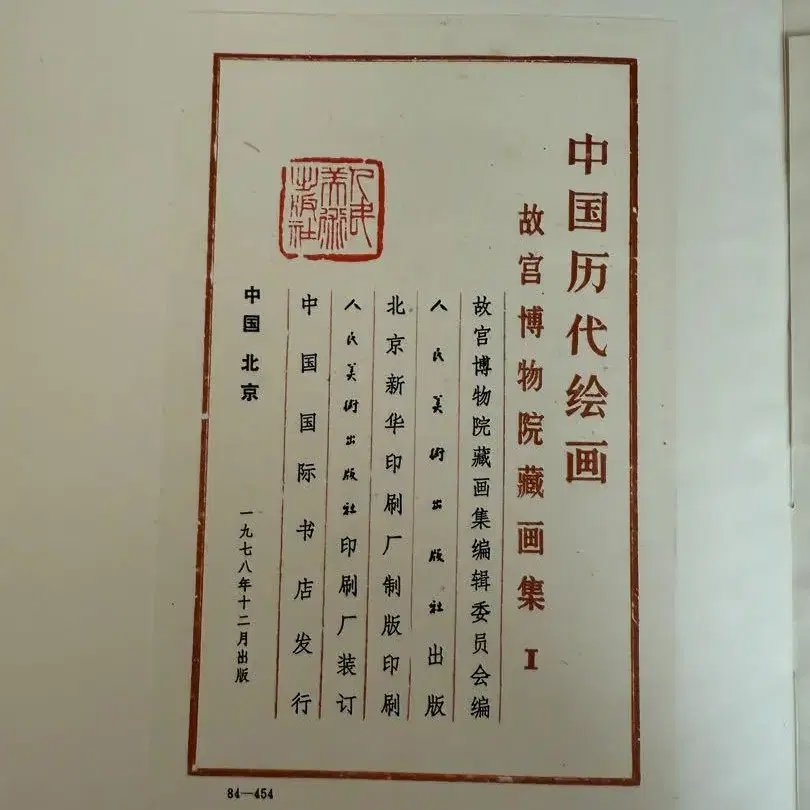 中国历代绘画
故宫博物院藏画集 I
故宫博物院藏画集编辑委员会编
人民美术出版社出版
北京新华印刷厂制版印刷
人民美术出版社印刷厂装订
中国国际书店发行
人民美术出版社
中国 北京
一九七八年十二月出版
84—454